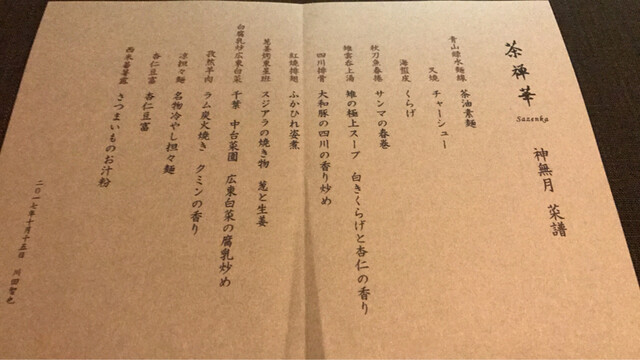 茶禅華
Sazenka
神無月 菜譜
青山緑水麺線 茶油素麺
叉焼 チャーシュー
海蜇皮 くらげ
秋刀魚春捲 サンマの春巻
雉雲呑上湯 雉の極上スープ 白きくらげと杏仁の香り
四川排骨 大和豚の四川の香り炒め
紅焼排翅 ふかひれ姿煮
葱姜焗東星班 スジアラの焼き物 葱と生姜
白腐乳炒広東白菜 千葉 中台菜園 広東白菜の腐乳炒め
孜然羊肉 ラム炭火焼き クミンの香り
涼担々麺 名物冷やし担々麺
杏仁豆富 杏仁豆富
西米蕃薯露 さつまいものお汁粉
二〇一七年十月十五日 川田智也